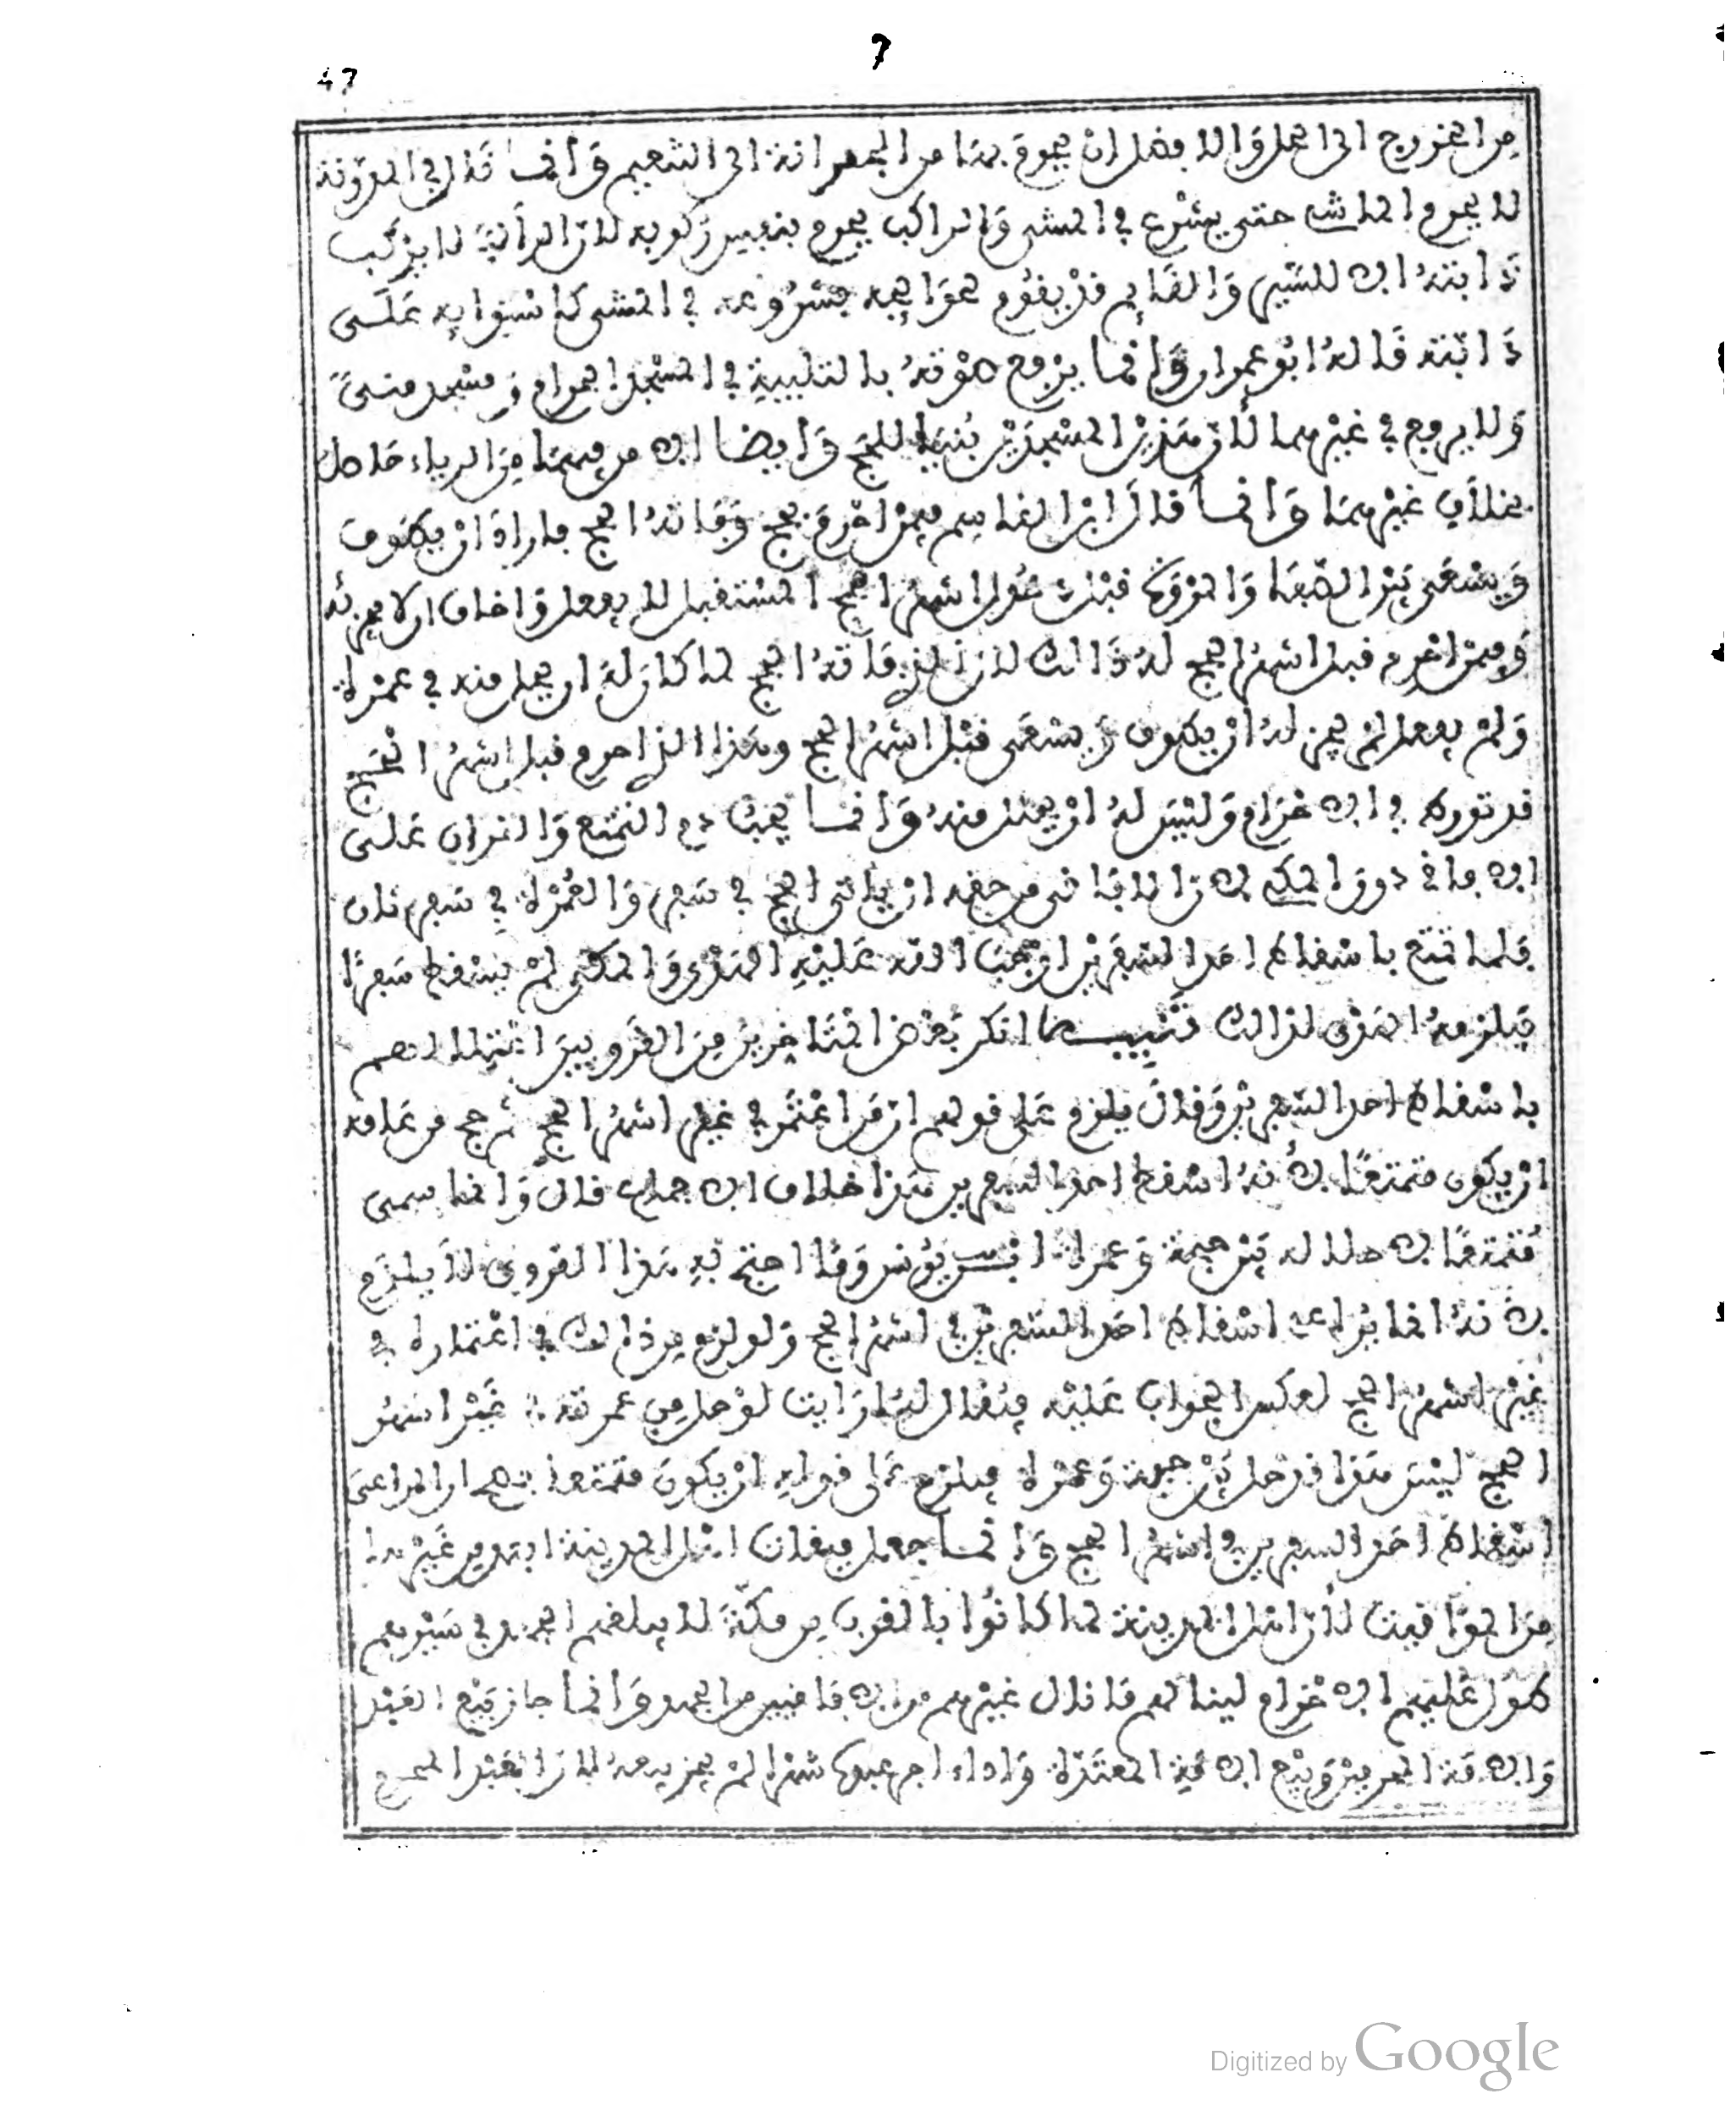 47
7
من الخروج الى الحل والافضل ان يحرم بها من الجعرانة الى التنعيم وانما قال في المدونة
لا يحرم الماشي حتى يشرع في المشي والراكب يحرم بنفس ركوبه لان الراكب لا يركب
دابته الا للسير والقايم قد يقوم لحوايجه فشروعه في المشي كاستوايه على
دابته قاله ابو عمران وانما يرفع صوته بالتلبية في المسجد الحرام ومسجد منى
ولا يرفع في غيرهما لان هذين المسجدين بنيا للحج وايضا الامن فيهما من الرياء حاصل
بخلاف غيرهما وانما قال ابن القاسم فيمن احرم بحج وفاته الحج فاراد ان يطوف
ويسعى بين الصفا والمروة قبل دخول اشهر الحج المستقبل لا يفعل واخاف ان لا يجزئه
وفيمن احرم قبل اشهر الحج له ذالك لان الذي فاته الحج لما كان له ان يحل منه في عمرة
ولم يفعل لم يجز له ان يطوف ويسعى قبل اشهر الحج وهذا الذي احرم قبل اشهر الحج
قد تورط في الاحرام وليس له ان يحل منه وانما يجب دم التمتع والقران على
الافاقي دون المكي لان الافاقي من حقه ان ياتي الحج في سفر والعمرة في سفر ثان
فلما تمتع باسقاط احد السفرين اوجب الله عليه الهدي والمكي لم يسقط سفرا
فيلزمه الهدي لذالك تنبيه انكر بعض المتاخرين من القرويين اعتلالهم
باسقاط احد السفرين وقال يلزم على قولهم ان من اعتمر في غير اشهر الحج ثم حج من عامه
ان يكون متمتعا لانه اسقط احد السفرين هذا خلاف الاجماع قال وانما سمي
متمتعا لاحلاله بين حجة وعمرة ابن يونس وما احتج به هذا القروي لا يلزم
لانه انما يراعى اسقاط احد السفرين في اشهر الحج ولو لزم من ذالك في اعتماره في
غير اشهر الحج لعكس الجواب عليه فيقال له ارايت لو حل من عمرته في غير اشهر
الحج اليس هذا قد حل بين حجة وعمرة فيلزم على قوله ان يكون متمتعا فصح ان المراعى
اسقاط احد السفرين في اشهر الحج وانما جعل ميقات اهل المدينة ابعد من غيرها
من المواقيت لان اهل المدينة لما كانوا بالقرب من مكة لا يبلغهم الجهد في سيرهم
طول عليهم الاحرام لينالهم ما نال غيرهم من الافاقيين من الجهد وانما جاز بيع العبد
والامة المحرمين وبيع الامة المعتدة واذا اجر عبده شهرا لم يجز بيعه لان العبد المحرم
Digitized by Google